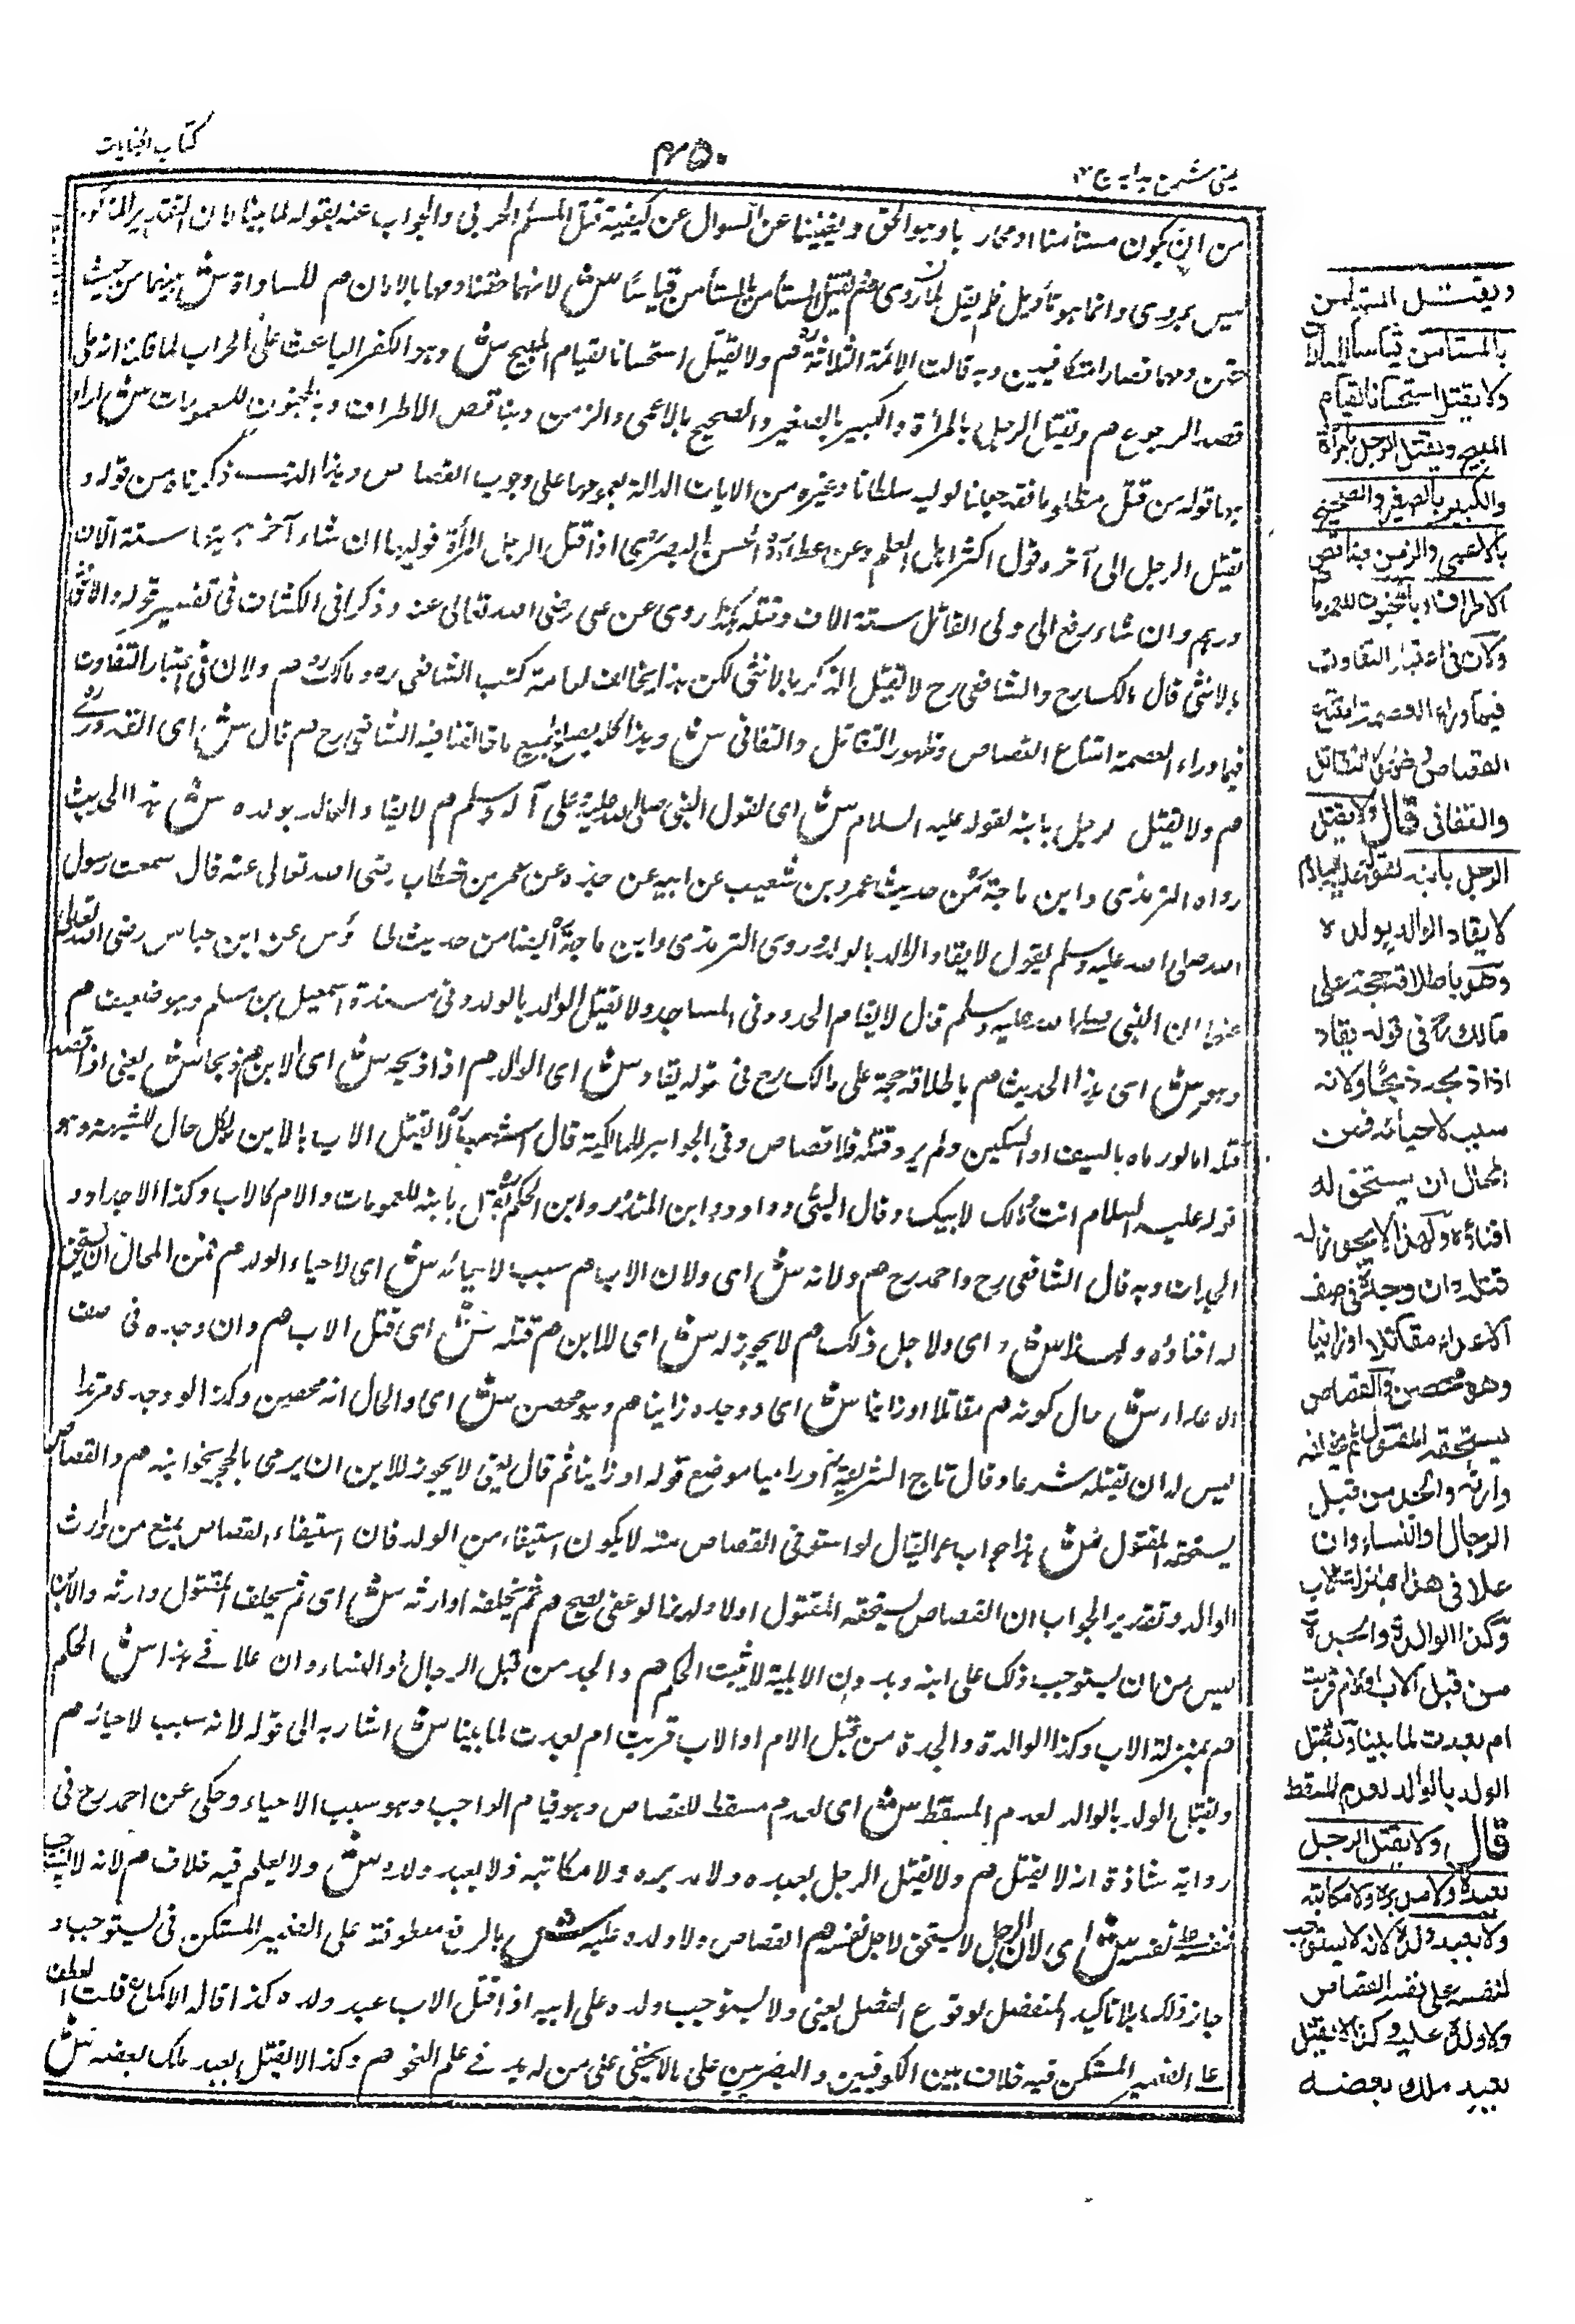 كتاب الجنايات
۴۵۰
عینی شرح ہدایہ ج ۴
من ان يكون مستأمنا او محاربا وهو الحق ويغنينا عن السوال عن كيفية قتل المسلم الحربي والجواب عنه بقوله لما بينا لان التقدير المذكور
ليس بمروي وانما هو تأويل فلم يقل لما روى هم يقتل المستأمن بالمستأمن قياسا ش لانهما حقنا دمهما بالامان هم للمساواة ش بينهما من حيث
حقن دمهما فصارا متكافيين وبه قالت الائمة الثلاثة هم ولا يقتل استحسانا لقيام المبيح ش وهو الكفر الباعث على الحراب لما قلنا انه على
قصد الرجوع هم ويقتل الرجل بالمرأة والكبير بالصغير والصحيح بالاعمى والزمن وبناقص الاطراف وبالمجنون للعمومات ش اراد
بها قوله من قتل مظلوما فقد جعلنا لوليه سلطانا وغيره من الايات الدالة بعمومها على وجوب القصاص وهذا الذي ذكرناه من قوله و
يقتل الرجل الى آخره قول اكثر اهل العلم وعن عطاء والحسن البصري اذا قتل الرجل المرأة فوليها ان شاء آخذ ديتها ستة آلاف
درهم وان شاء رفع الى ولى القاتل ستة الاف وقتله هكذا روى عن على رضى الله تعالى عنه وذكر في الكشاف فى تفسير قوله والانثى
بالانثى قال مالك رح والشافعى رح لا يقتل الذكر بالانثى لكن هذا يخالف لعامة كتب الشافعى ره ومالك ره هم ولان فى اعتبار التفاوت
فيما وراء العصمة امتناع القصاص وظهور التقاتل والتفانى ش وهذا كله يصلح لجميع ما خالفنا فيه الشافعى رح هم قال ش اى القدورى
هم ولا يقتل الرجل بابنه لقوله عليه السلام ش اى لقول النبى صلى الله عليه وعلى آله وسلم هم لا يقاد الوالد بولده ش هذا الحديث
رواه الترمذى وابن ماجة من حديث عمرو بن شعيب عن ابيه عن جده عن عمر بن خطاب رضى الله تعالى عنه قال سمعت رسول
الله صلى الله عليه وسلم يقول لا يقاد الوالد بالولد وروى الترمذى وابن ماجة ايضا من حديث طاؤس عن ابن عباس رضى الله تعالى
عنهما ان النبى صلى الله عليه وسلم قال لا يقام الحدود فى المساجد ولا يقتل الوالد بالولد وفى سنده اسمعيل بن مسلم وهو ضعيف هم
وهو ش اى هذا الحديث هم باطلاقه حجة على مالك رح فى قوله يقاد ش اى الوالد هم اذا ذبحه ش اى الابن هم ذبحا ش يعنى اذا قصد
قتله اما لو رماه بالسيف او السكين ولم يرد قتله فلا قصاص وفى الجواهر للمالكية قال اشهب لا يقتل الاب بالابن بكل حال للشبهة وهو
قوله عليه السلام انت ومالك لابيك وقال البتى وداود وابن المنذر وابن الحكم يقتل بابنه للعمومات والام كالاب وكذا الاجداد و
الجدات وبه قال الشافعى رح واحمد رح هم ولانه ش اى ولان الاب هم سبب لاحيائه ش اى لاحياء الولد هم فمن المحال ان يستحق
له افناؤه ولهذا ش اى ولاجل ذلك هم لا يجوز له ش اى للابن هم قتله ش اى قتل الاب هم وان وجده فى صف
الاعداء ش حال كونه هم مقاتلا او زانيا ش اى ووجده زانيا هم وهو محصن ش اى والحال انه محصن وكذا لو وجده مرتدا
ليس له ان يقتله شرعا وقال تاج الشريعة ورواميا موضع قوله او زانيا ثم قال يعنى لا يجوز للابن ان يرمى بالحجر نحو ابيه هم والقصاص
يستحقه المقتول ش هذا جواب عما يقال لو استوفى القصاص منه لا يكون استيفاء من الولد فان استيفاء القصاص يمنع من وارث
الوالد وتقرير الجواب ان القصاص يستحقه المقتول اولا ولهذا لو عفى يصح هم ثم يخلفه وارثه ش اى ثم يخلف المقتول وارثه والابن
ليس من ان يستوجب ذلك على ابنه وبدون الاهلية لا يثبت الحكم هم والجد من قبل الرجال والنساء وان علا فى هذا ش الحكم
هم بمنزلة الاب وكذا الوالدة والجدة من قبل الام او الاب قربت ام بعدت لما بينا ش اشار به الى قوله لانه سبب لاحيائه هم
ويقتل الولد بالوالد لعدم المسقط ش اى لعدم مسقط للقصاص وهو قيام الواجب وهو سبب الاحياء وحكى عن احمد رح فى
رواية شاذة انه لا يقتل هم ولا يقتل الرجل بعبده ولا مدبره ولا مكاتبه ولا بعبد ولده ش ولا يعلم فيه خلاف هم لانه لا يستوجب
لنفسه على نفسه ش اى لان الرجل لا يستحق لاجل نفسه هم القصاص ولا ولده عليه ش بالرفع معطوفة على الضمير المستكن فى يستوجب و
جاز ذلك بلا تاكيد المنفصل لوقوع الفصل يعنى ولا يستوجب ولده على ابيه اذا قتل الاب عبد ولده كذا قاله الاكمل قلت العطف
على الضمير المستكن فيه خلاف بين الكوفيين والبصريين على مالا يخفى على من له يد فى علم النحو هم وكذا لا يقتل بعبد ملك بعضه ش
ويقتل المستأمن
بالمستأمن قياسا للمساواة
ولا يقتل استحسانا لقيام
المبيح ويقتل الرجل بالمرأة
والكبير بالصغير والصحيح
بالاعمى والزمن وبناقص
الاطراف وبالمجنون للعمومات
ولان فى اعتبار التفاوت
فيما وراء العصمة امتناع
القصاص وظهور التقاتل
والتفانى قال ولا يقتل
الرجل بابنه لقوله عليه السلام
لا يقاد الوالد بولده
وهو باطلاقه حجة على
مالك رح فى قوله يقاد
اذا ذبحه ذبحا ولانه
سبب لاحيائه فمن
المحال ان يستحق له
افناؤه ولهذا لا يجوز له
قتله وان وجده فى صف
الاعداء مقاتلا او زانيا
وهو محصن والقصاص
يستحقه المقتول ثم يخلفه
وارثه والجد من قبل
الرجال والنساء وان
علا فى هذا بمنزلة الاب
وكذا الوالدة والجدة
من قبل الاب او الام قربت
ام بعدت لما بينا ويقتل
الولد بالوالد لعدم المسقط
قال ولا يقتل الرجل
بعبده ولا مدبره ولا مكاتبه
ولا بعبد ولده لانه لا يستوجب
لنفسه على نفسه القصاص
ولا ولده عليه وكذا لا يقتل
بعبد ملك بعضه